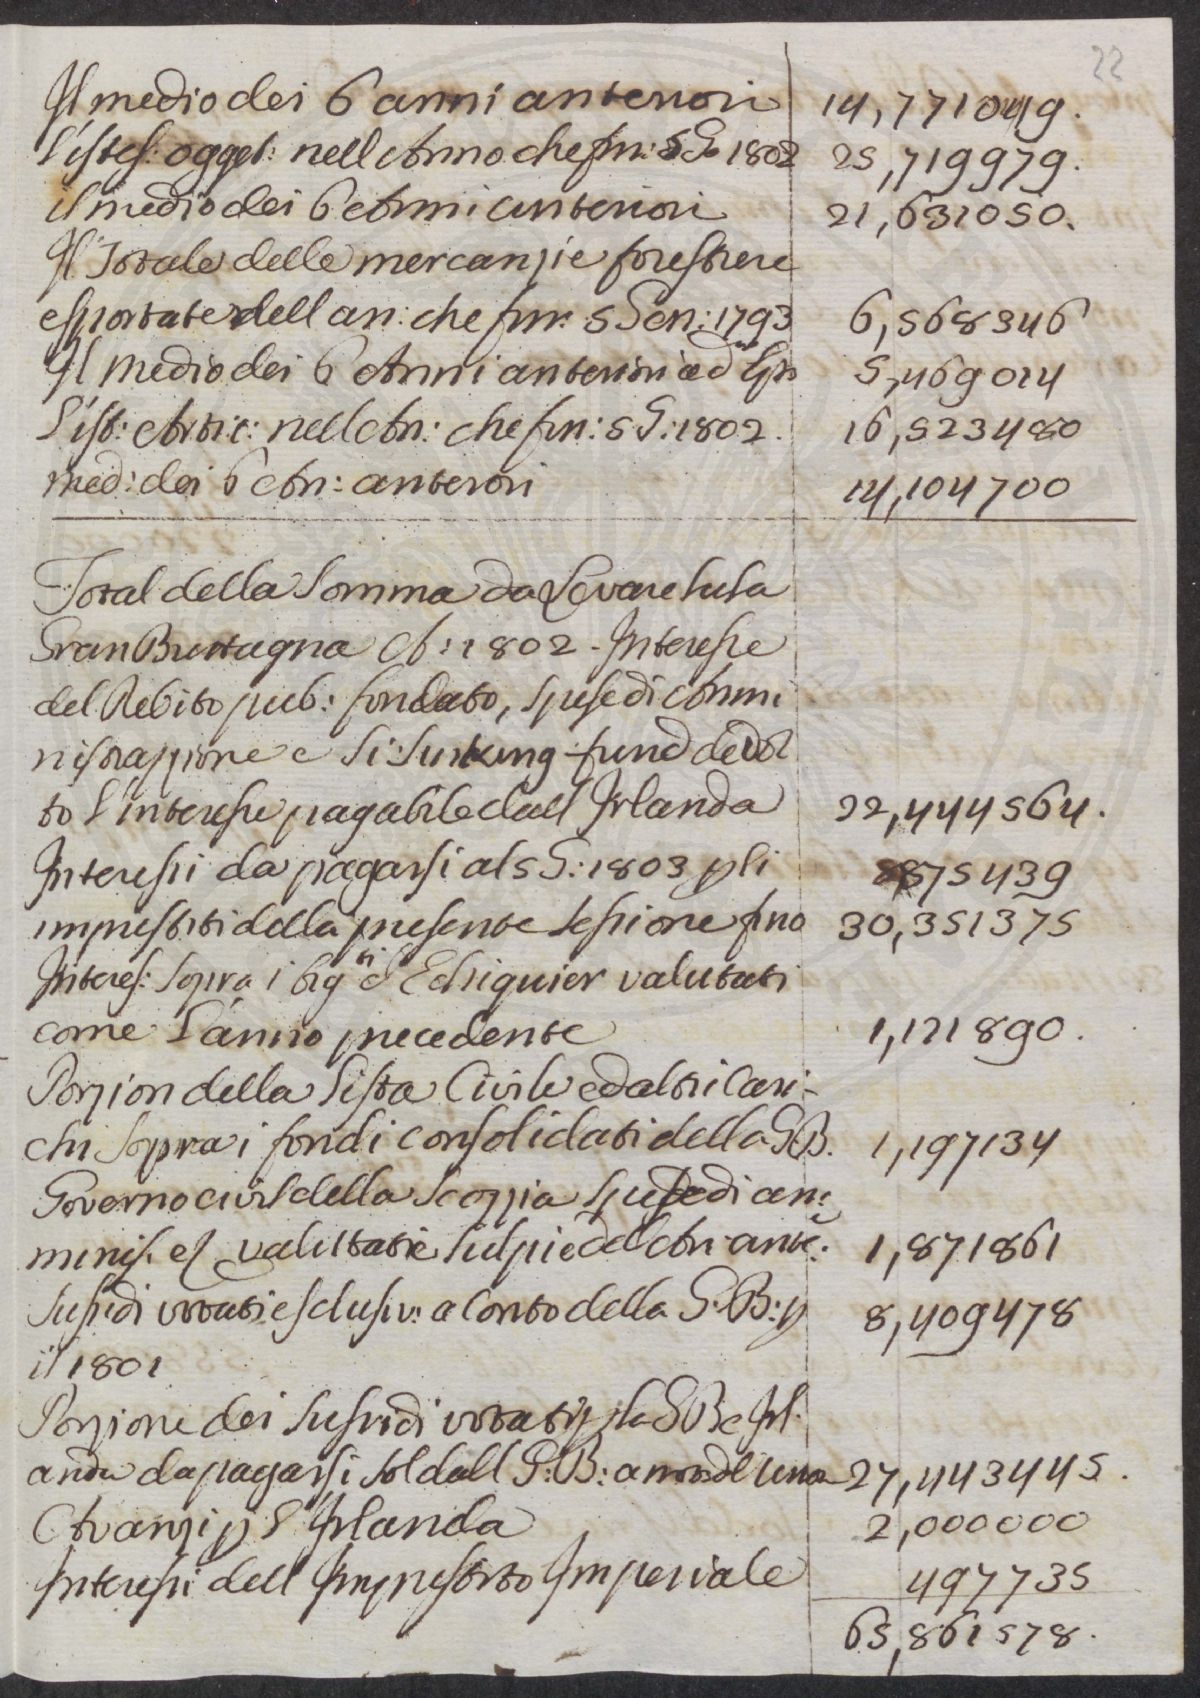 22
Il medio dei 6 anni anteriori 14,771049.
L'istes: ogget: nell Anno che fin: 5 G. 1802 25,719979.
il medio dei 6 Anni anteriori 21,631050.
Il Totale delle mercanzie forestiere
esportate dell an: che fin: 5 Gen: 1793 6,568346
Il Medio dei 6 Anni anteriori ad 5,469014
L'ist: Artic: nell An: che fin: 5 G: 1802. 16,523480
med: dei 6 An: anteriori 14,104700
Total della Somma da Levare sula
Gran Brettagna A: 1802 - Interesse
del Debito pub: fondato, spese di Ammi
nistrazzione e Si: Sinking-fund dedot
to l'interesse pagabile dall Irlanda 22,444564.
Interessi da pagarsi al 5 G: 1803 p li 875439
imprestiti della presente sessione fino 30,351375
Interes: sopra i big.ti d'Echiquier valutati
come l'anno precedente 1,121890.
Porzion della Lista Civile ed altri Cari-
chi sopra i fondi consolidati della G.B. 1,197134
Governo civil della Scozzia spese di am:
minis: es valuttatie sul pie del An: ante: 1,871861
Susidi vottati esclusiv: a Conto della G: B: p 8,409478
il 1801
Porzione dei Susvidi vottati p la G B e Irl.
anda da pagarsi sol dall G: B: a 27,443445.
Avanzi p l'Irlanda 2,000000
Interessi dell Imprestito Imperiale 497735
65,861578.